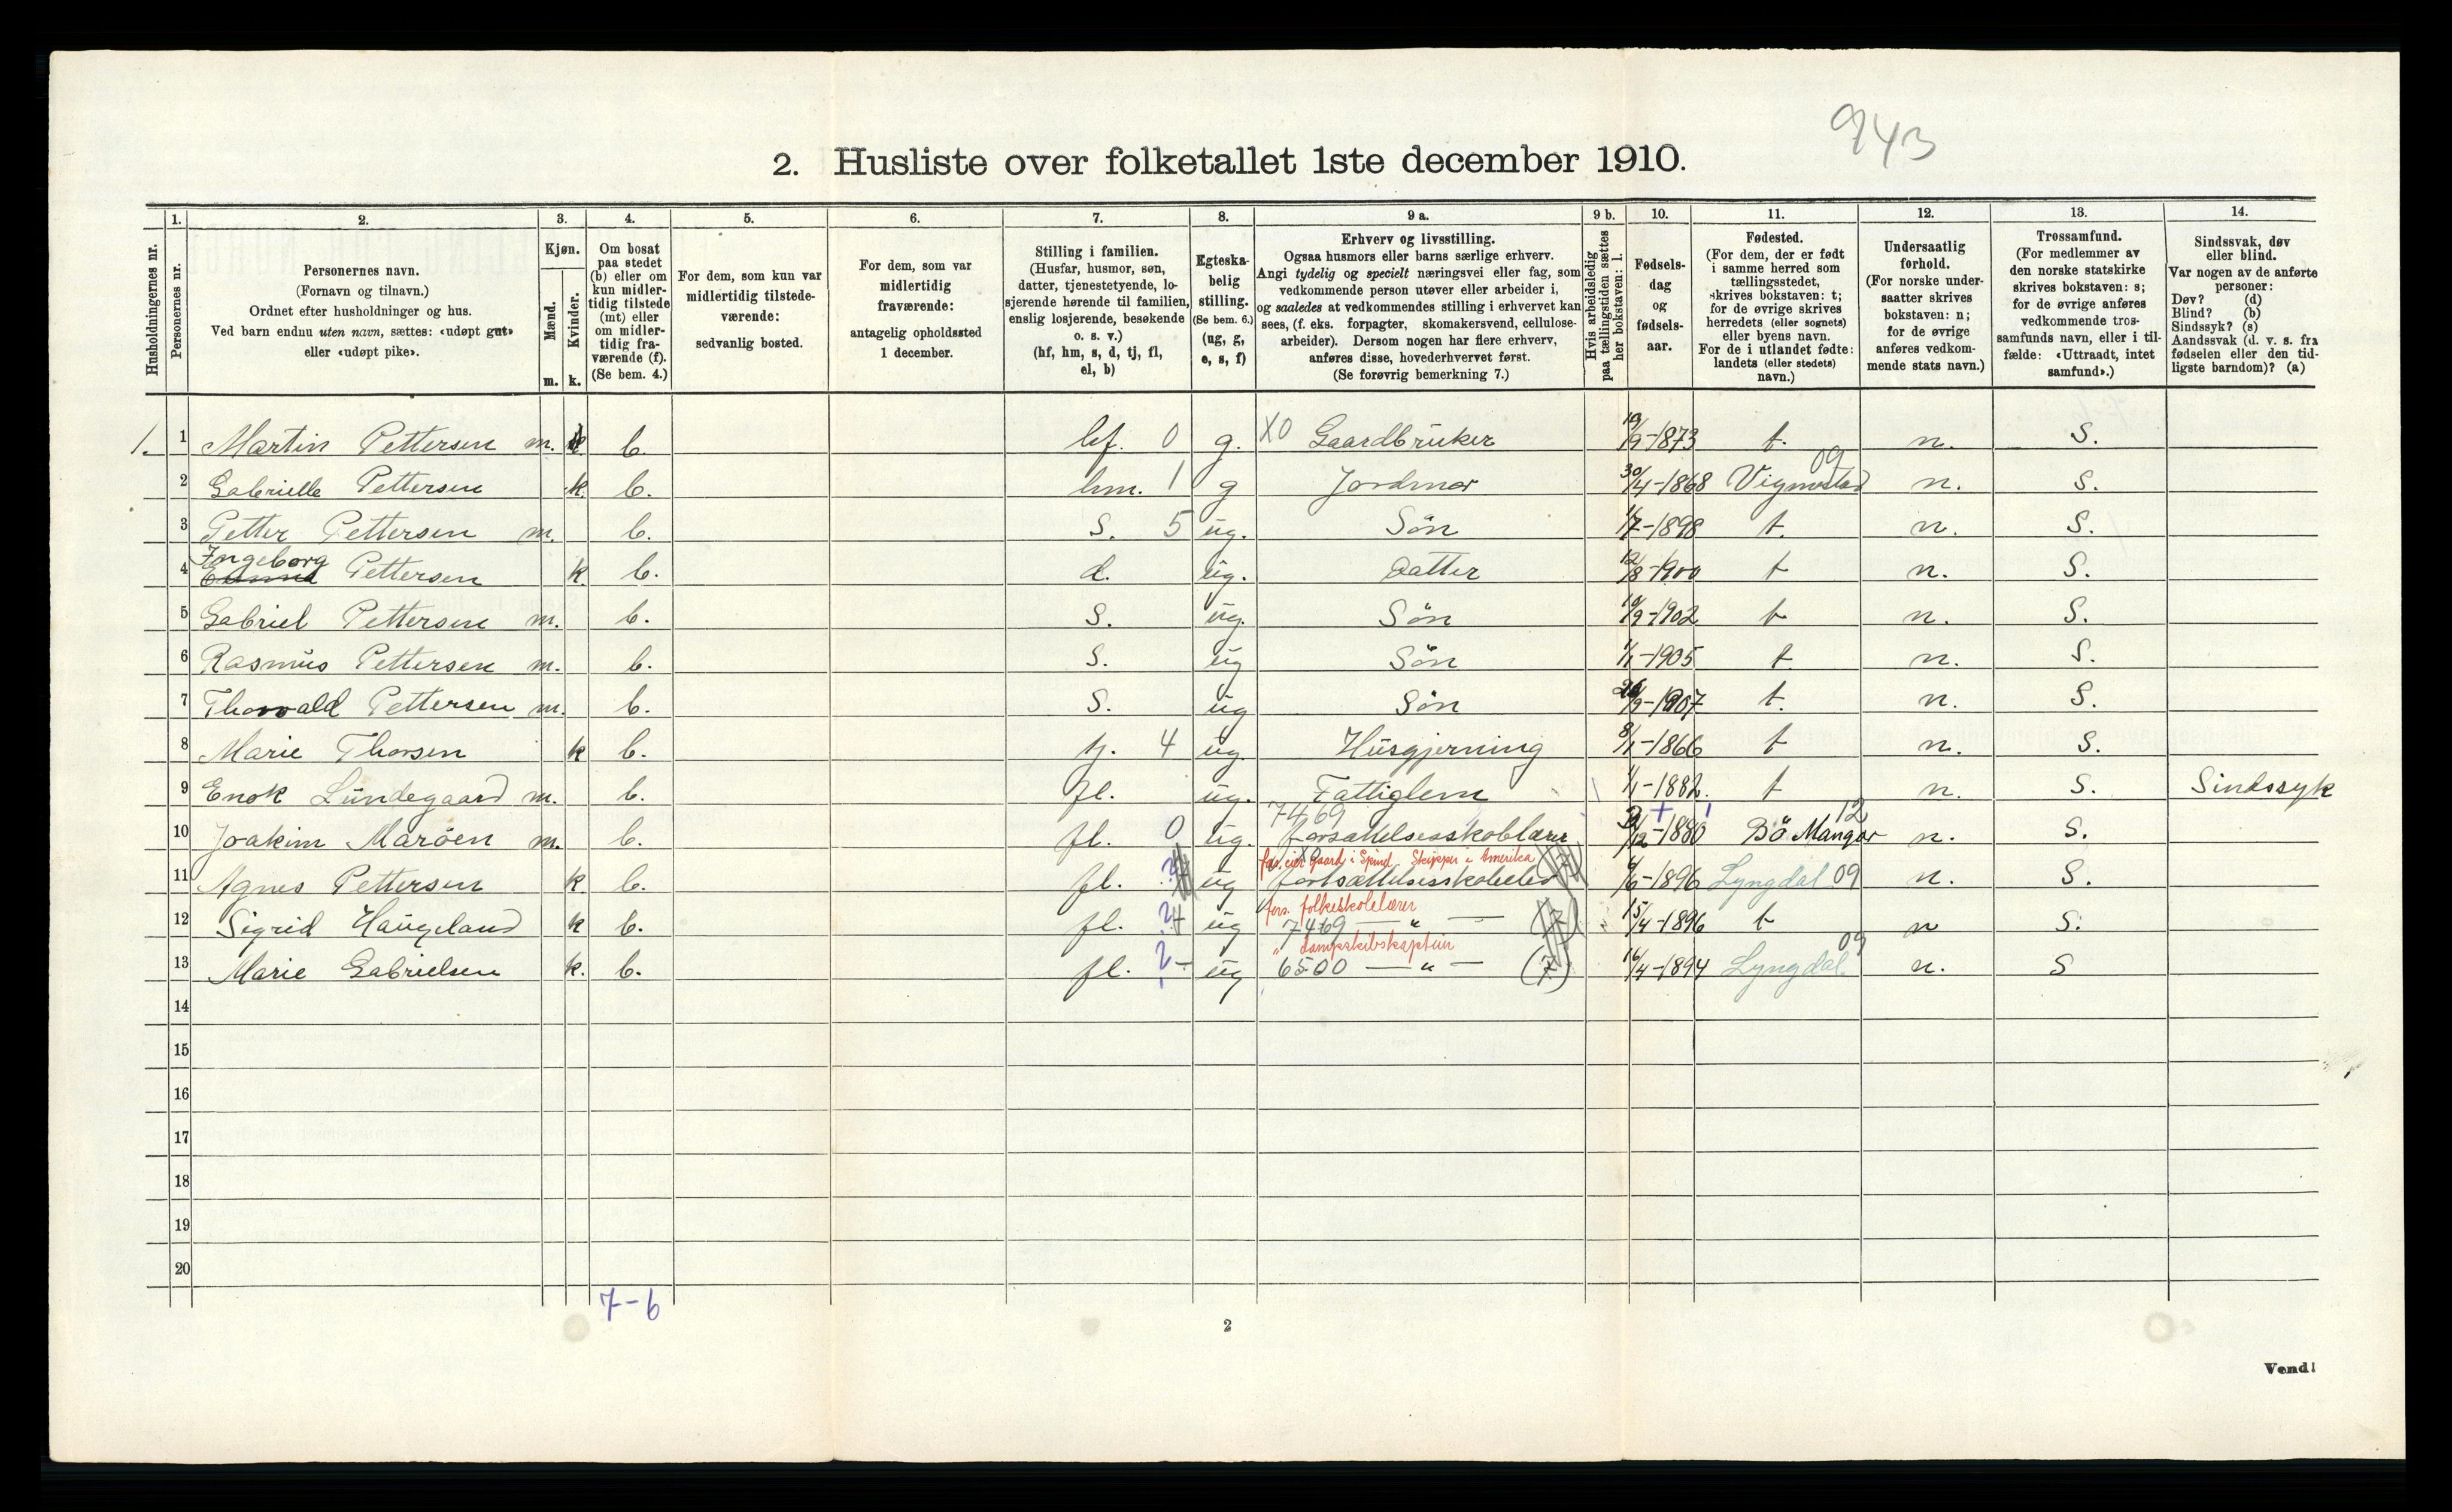 943
2. Husliste over folketallet 1ste december 1910.
1. 2. 3. 4. 5. 6. 7. 8. 9 a. 9 b. 10. 11. 12. 13. 14.
Husholdningernes nr.
Personernes nr.
Personernes navn.
(Fornavn og tilnavn.)
Ordnet efter husholdninger og hus.
Ved barn endnu uten navn, sættes: «udøpt gut»
eller «udøpt pike».
Kjøn.
Mænd.
Kvinder.
m. k.
Om bosat
paa stedet
(b) eller om
kun midler-
tidig tilstede
(mt) eller
om midler-
tidig fra-
værende (f).
(Se bem. 4.)
For dem, som kun var
midlertidig tilstede-
værende:
sedvanlig bosted.
For dem, som var
midlertidig
fraværende:
antagelig opholdssted
1 december.
Stilling i familien.
(Husfar, husmor, søn,
datter, tjenestetyende, lo-
sjerende hørende til familien,
enslig losjerende, besøkende
o. s. v.)
(hf, hm, s, d, tj, fl,
el, b)
Egteska-
belig
stilling.
(Se bem. 6.)
(ug, g,
e, s, f)
Erhverv og livsstilling.
Ogsaa husmors eller barns særlige erhverv.
Angi tydelig og specielt næringsvei eller fag, som
vedkommende person utøver eller arbeider i,
og saaledes at vedkommendes stilling i erhvervet kan
sees, (f. eks. forpagter, skomakersvend, cellulose-
arbeider). Dersom nogen har flere erhverv,
anføres disse, hovederhvervet først.
(Se forøvrig bemerkning 7.)
Hvis arbeidsledig
paa tællingstiden sættes
her bokstaven: l.
Fødsels-
dag
og
fødsels-
aar.
Fødested.
(For dem, der er født
i samme herred som
tællingsstedet,
skrives bokstaven: t;
for de øvrige skrives
herredets (eller sognets)
eller byens navn.
For de i utlandet fødte:
landets (eller stedets)
navn.)
Undersaatlig
forhold.
(For norske under-
saatter skrives
bokstaven: n;
for de øvrige
anføres vedkom-
mende stats navn.)
Trossamfund.
(For medlemmer av
den norske statskirke
skrives bokstaven: s;
for de øvrige anføres
vedkommende tros-
samfunds navn, eller i til-
fælde: «Uttraadt, intet
samfund».)
Sindssvak, døv
eller blind.
Var nogen av de anførte
personer:
Døv? (d)
Blind? (b)
Sindssyk? (s)
Aandssvak (d. v. s. fra
fødselen eller den tid-
ligste barndom)? (a)
1. 1 Martin Pettersen m. b. hf. 0 g. X0 Gaardbruker 19/9-1873 t. n. S.
2 Gabrielle Pettersen k. b. hm. 1 g Jordmor 30/4-1868 Vigmostad 09 n. S.
3 Petter Pettersen m. b. S. 5 ug. Sön 1/7-1898 t. n. S.
4 Ingeborg Pettersen k b. d. ug. Datter 12/8-1900 t n. S.
5 Gabriel Pettersen m. b. S. ug. Sön 10/9-1902 t n. S.
6 Rasmus Pettersen m. b. S. ug Sön 1/1-1905 t. n. S.
7 Thorvald Pettersen m. b. S. ug Sön 26/9-1907 t. n. S.
8 Marie Thorsen k b. tj. 4 ug. Husgjerning 8/1-1866 t n. S.
9 Enok Lundegaard m. b. fl. ug. Fattiglem 1/1-1882. t n. S. Sindssyk
7469 12
10 Joakim Maröen m. b. fl. 0 ug. forsættelsesskolelærer /12-1880 Bö Mangor n. S.
fars. eier gaard i Spind. Skipper i Amerika
11 Agnes Pettersen k b. fl. ? ug fortsættelsesskoleelev 6/6-1896 Lyngdal 09 n. S.
fars. folkeskolelærer
12 Sigrid Haugeland k b. fl. ?4 ug 7469 — " — (7) 15/4-1896 t n S.
" dampskibskaptein 09
13 Marie Gabrielsen k. b. fl. ?- ug 6500 — " — (7) 16/4-1894 Lyngdal n. S
14
15
16
17
18
19
20
7-6
2
Vend!